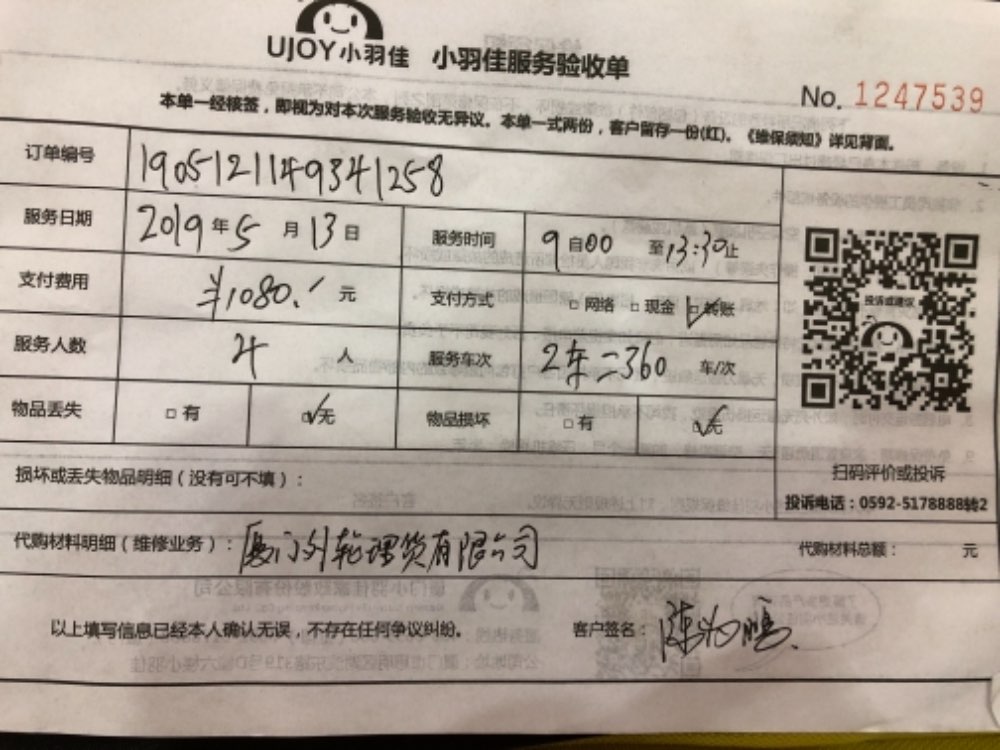 UJOY小羽佳 小羽佳服务验收单
No. 1247539
本单一经核签，即视为对本次服务验收无异议。本单一式两份，客户留存一份(红)。《维保须知》详见背面。
订单编号 190512114934 1258
服务日期 2019年5月13日 服务时间 9自00至13:30止
支付费用 ¥1080. 元 支付方式 □网络 □现金 ☑转账
服务人数 4人 服务车次 2车=360 车/次
物品丢失 □有 ☑无 物品损坏 □有 ☑无
投诉或建议
扫码评价或投诉
投诉电话：0592-5178888转2
损坏或丢失物品明细（没有可不填）：
代购材料明细（维修业务）：厦门外轮理货有限公司 代购材料总额： 元
以上填写信息已经本人确认无误，不存在任何争议纠纷。 客户签名：陈为鹏